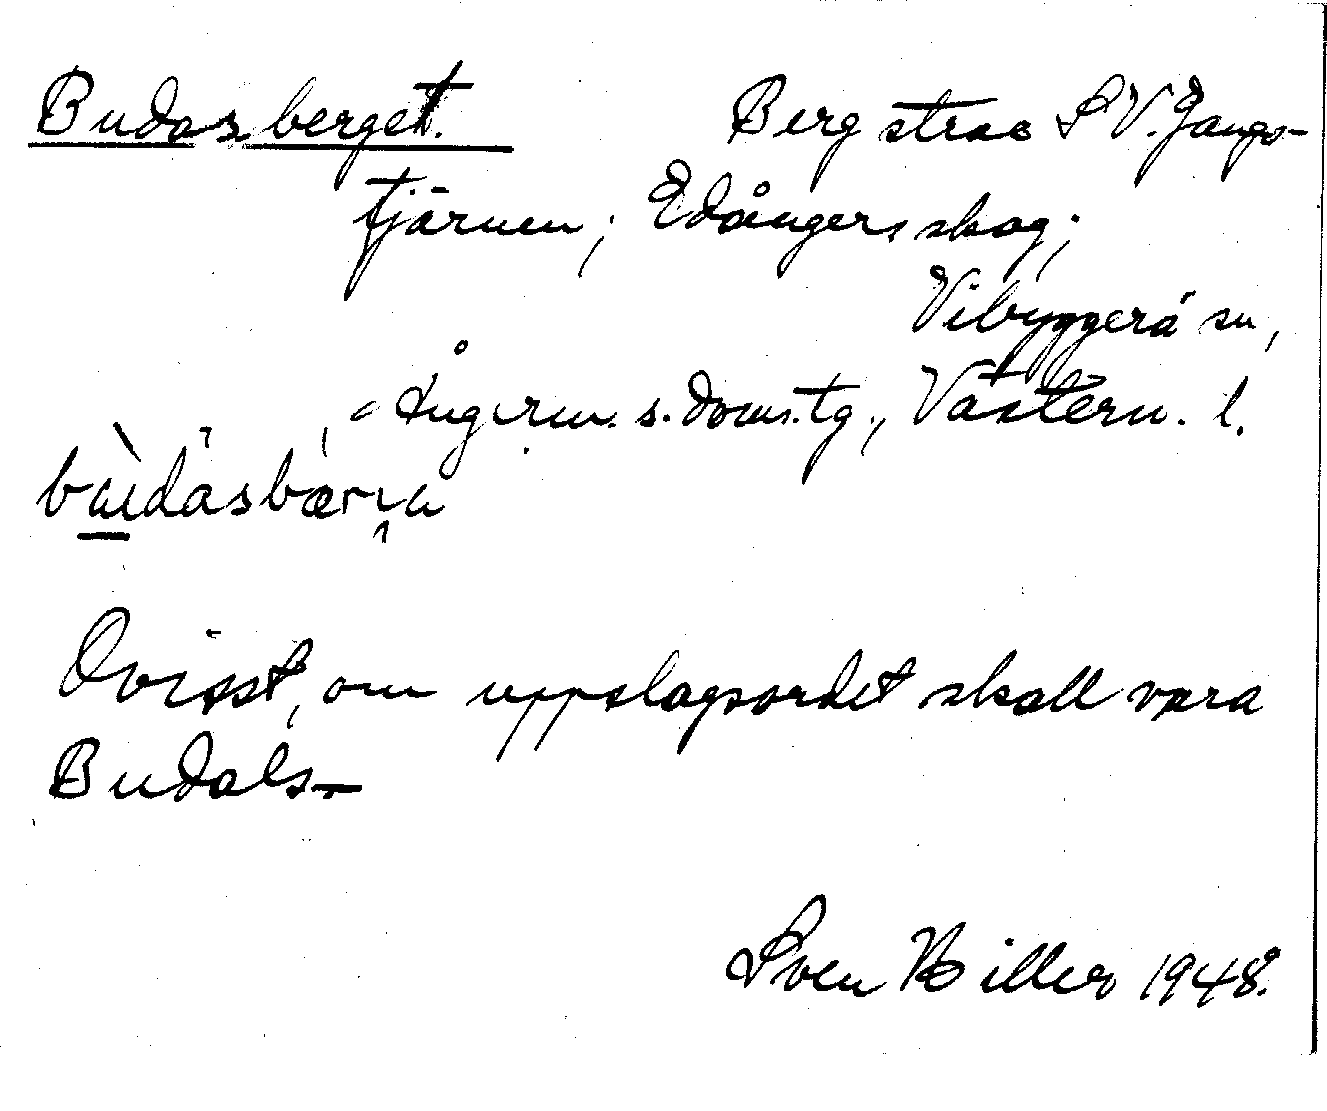 Budasberget. Berg strax S V. Gangs-
tjärnen; Edångers skog;
Vibyggerå sn,
Ångerm. s. doms.tg., Västern. l.
Ovisst, om uppslagsordet skall vara
Budals-
Sven Biller 1948.